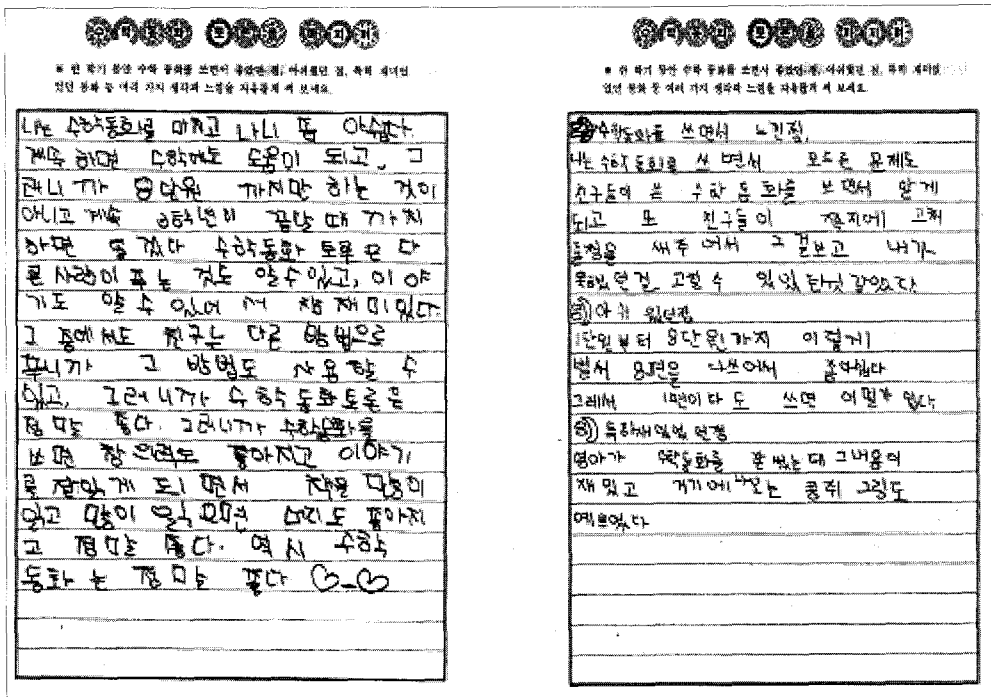 수학동화 토론을 마치며
※ 한 학기 동안 수학 동화를 쓰면서 좋았던 점, 아쉬웠던 점, 특히 재미있
었던 동화 등 여러 가지 생각과 느낌을 자유롭게 써 보세요.
나는 수학동화를 마치고 나니 좀 아쉽다
계속 하면 수학에도 도움이 되고, 그
러니까 8단원 까지만 하는 것이
아니고 계속 끝날 때 까지
하면 좋겠다 수학동화 토론은 다
른 사람이 푸는 것도 알수있고, 이야
기도 알 수 있어 서 참 재미있다.
그 중에서도 친구는 다른 방법으로
푸니까 그 방법도 사용할 수
있고, 그러니까 수학동화토론은
정말 좋다. 그러니까 수학동화를
쓰면 창의력도 좋아지고 이야기
를 잘있게 되면서 책을 많이
읽고 많이 머리도 좋아지
고 정말 좋다. 역시 수학
동화 는 정말 좋다
수학동화 토론을 마치며
※ 한 학기 동안 수학 동화를 쓰면서 좋았던 점, 아쉬웠던 점, 특히 재미있
었던 동화 등 여러 가지 생각과 느낌을 자유롭게 써 보세요.
수학동화를 쓰면서 느낀점,
나는 수학동화를 쓰 면서 모르는 문제도
친구들이 쓴 수학 동화를 보면서 알게
되고 또 친구들이 고쳐
쓸점을 써주어서 그걸보고 내가
못했던걸 고칠 수 있었던것 같았다
아쉬 웠던점
1단원부터 8단원까지 이렇게
벌써 8편을 다쓰어서
그레서 1편이라 도 쓰면 어떨까 였다
특히재있었던점
영아가 수학동화를 잘 썼는데 그내용이
재밌고 거기에 나오는 콩쥐 그림도
예쁘였다